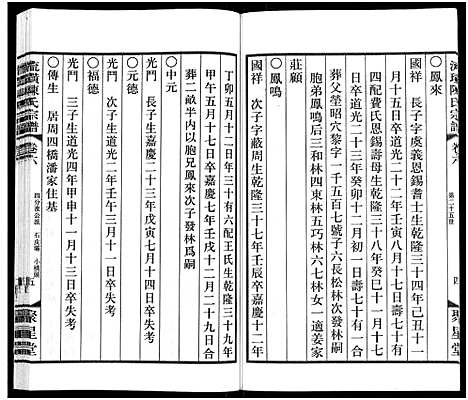 流璜陳氏宗譜 卷六 第二十五世 四 聚星堂
○鳳來
國祥 長子字虞義恩錫耆士生乾隆三十四年己丑十一
月十五日卒道光二十二年壬寅八月十七日壽七十有
四配費氏恩錫壽母生乾隆三十八年癸巳十一月十
六日卒道光二十三年癸卯十二月初一日壽七十有一
葬父塋昭穴黎字一千五百七號子六長松林次發林嗣
胞弟鳳鳴后三和林四東林五巧林六七林女一適姜家
莊顧
○鳳鳴
國祥 次子字蔽周生乾隆三十七年壬辰卒嘉慶十二年
丁卯五月十二日年三十有六配王氏生乾隆三十九年
甲午五月十七日卒嘉慶七年壬戌十二月二十九日合
葬二畝半內以胞兄鳳來次子發林爲嗣
○中元
光門 長子生嘉慶二十三年戊寅七月十四日卒失考
○元德
光門 次子生道光二年壬午三月十一日卒失考
○福德
光門 三子生道光四年甲申十一月十三日卒失考
○傳生 居周四橋潘家住基
流璜陳氏宗譜 卷六 五 聚星堂